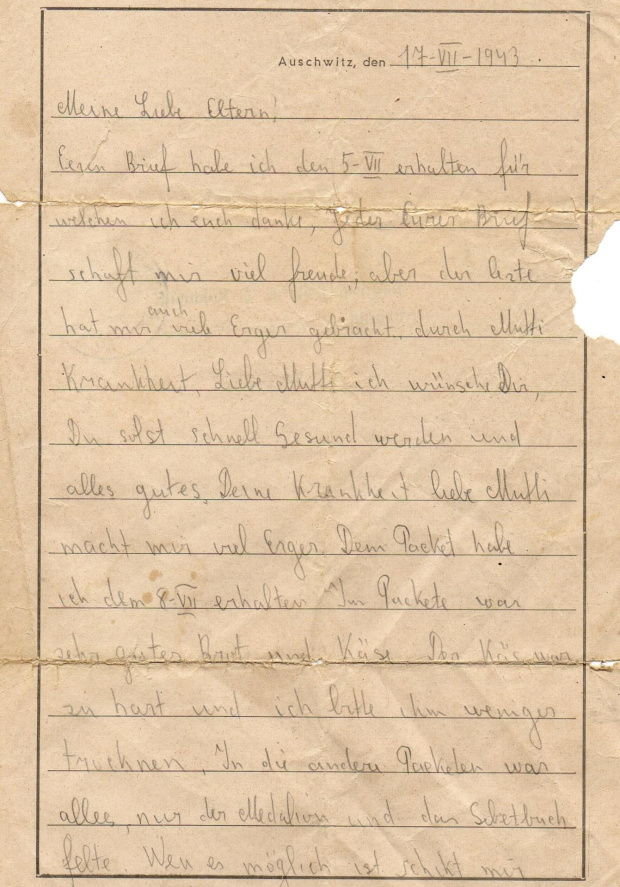 Auschwitz, den 17-VII-1943
Meine Liebe Eltern!
Euren Brief habe ich den 5-VII erhalten für
welchen ich euch danke, Jeder Eurer Brief
schaft mir viel freude, aber der lezte
auch
hat mir viele Erger gebracht durch Mutti
Krankheit, Liebe Mutti ich wünsche Dir,
Du solst schnell Gesund werden und
alles gutes, Deine Krankheit liebe Mutti
macht mir viel Erger. Dem Packet habe
ich dem 8-VII erhalten Im Packete war
sehr gutes Brot und Käse. Der Käs war
zu hart und ich bitte ihm weniger
trucknen, In die andere Packeten war
alles, nur der Medalion und das Gebetbuch
felte. Wen es möglich ist schikt mir